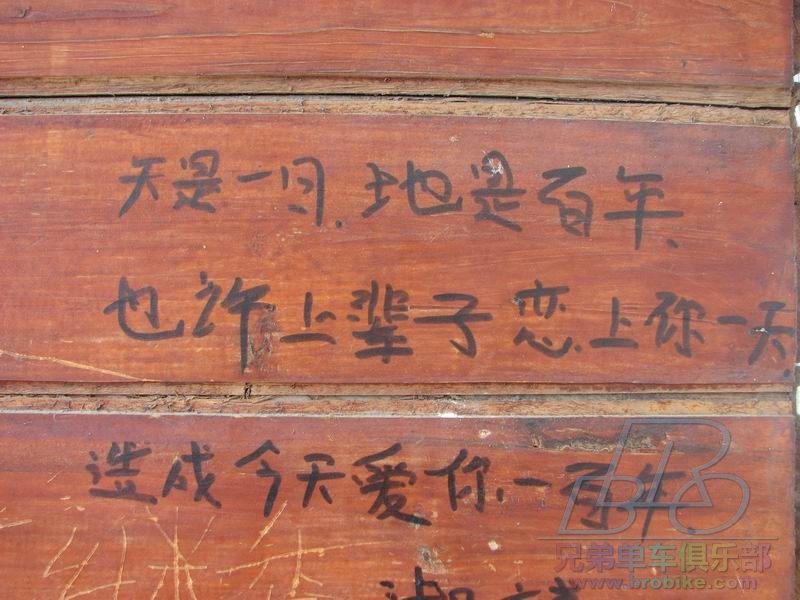 天是一日.地是百年、
也许上辈子恋上你一天.
造成今天爱你.一百年.
兄弟单车俱乐部
www.brobike.com